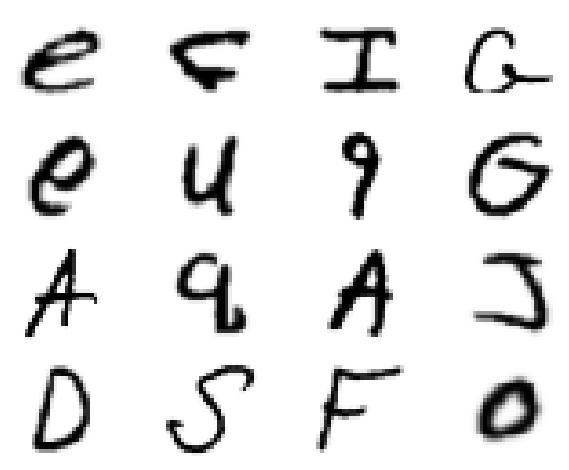 e I G
e u 9 G
A q A J
D S F O